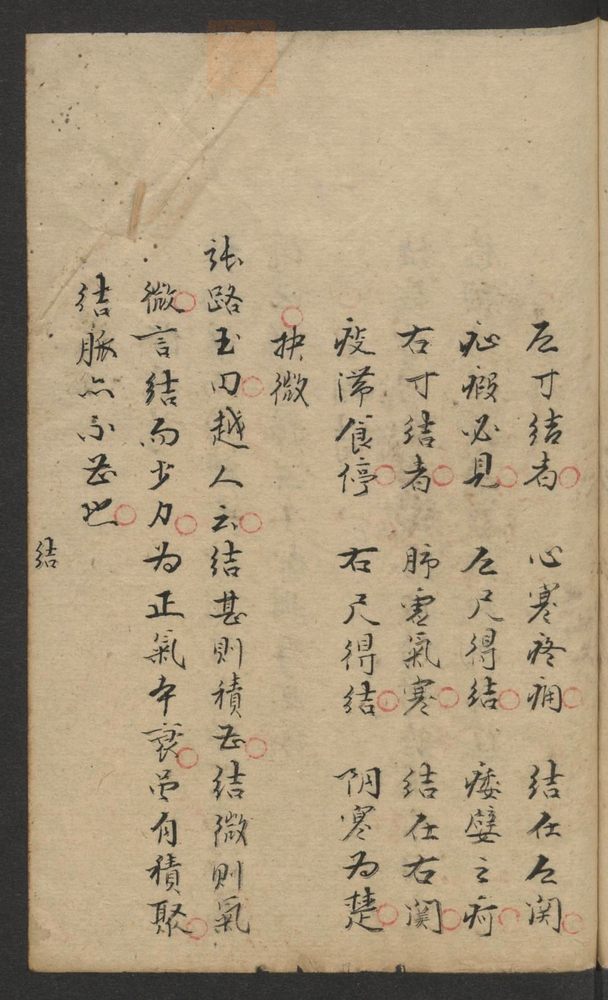 左寸結者 心寒疼痛 結在左関
疝瘕必見 左尺得結 痿躄之疴
右寸結者 肺虛氣寒 結在右関
痰滯食停 右尺得結 阴寒為楚
抉微
張路玉曰越人云結甚則積甚結微則氣
微言結而少力為正氣本衰虽有積聚
結脈亦不甚也
結